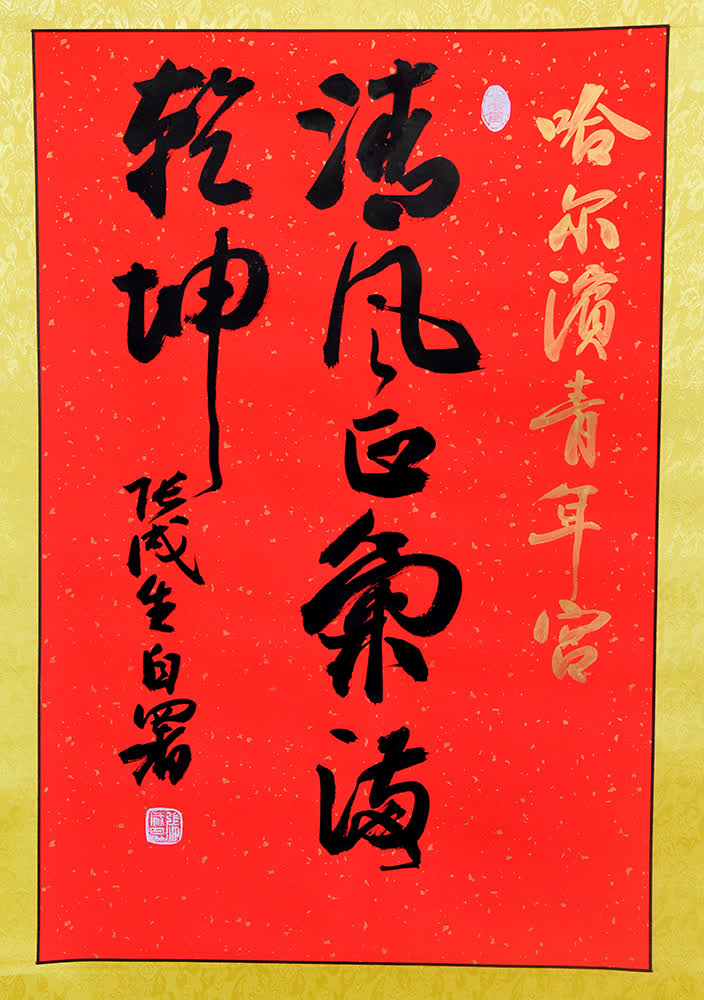 哈尔濱青年宫
清风正氣满
乾坤
张成生自署